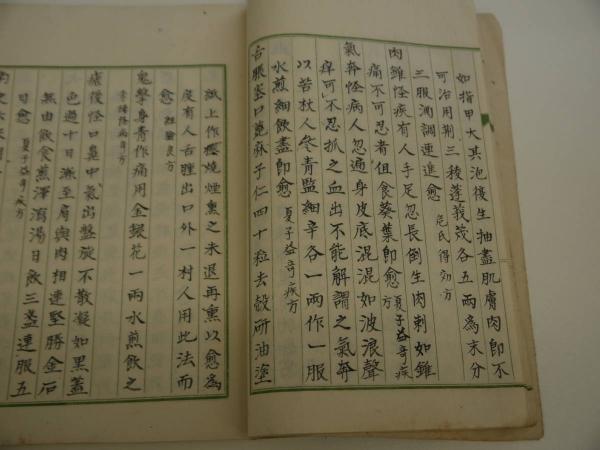 如指甲大其池後生抽盡肌膚肉即不
可治用荊三稜蓬莪茂各五兩為末分
三服酒調連進愈 危氏得効方
肉錐怪疾有人手足忽長倒生肉刺如錐
痛不可忍者但食葵葉即愈 夏子益奇疾方
氣奔怪病人忽遍身皮底混混如波浪聲
痒可不忍抓之血出不能解謂之氣奔
以苦杖人參青盬細辛各一兩作一服
水煎細飲盡即愈 夏子益奇疾方
舌脹塞口萞麻子仁四十粒去殼研油塗
紙上作撚燒煙熏之未退再熏以愈為
度有人舌腫出口外一村人用此法而
愈 經驗良方
鬼擊身青作痛用金銀花一兩水煎飲之
李樓怪病奇方
瘡後怪口鼻中氣出盤旋不散凝如黑蓋
色過十日漸至肩與肉相連堅勝金石
無由飲食煎澤瀉湯日飲三盞連服五
日愈 夏子益奇疾方